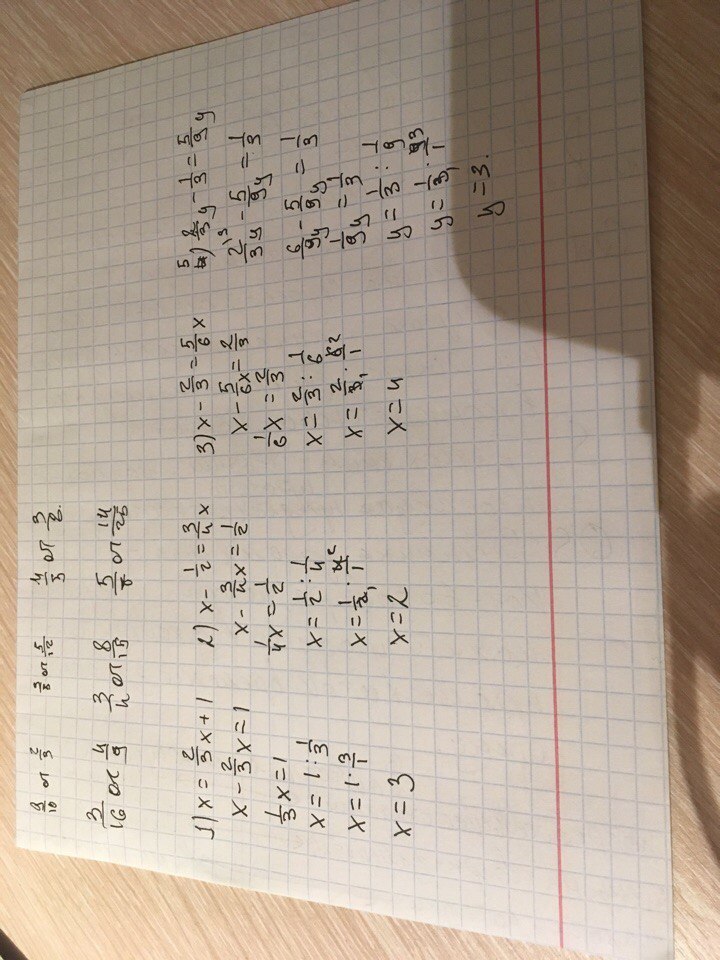 9/10 от 2/3 3/8 от 5/12 4/3 от 3/8.
3/16 от 4/9 3/4 от 8/15 5/7 от 14/25
1) x = 2/3x + 1
x - 2/3x = 1
1/3x = 1
x = 1 : 1/3
x = 1 · 3/1
x = 3
2) x - 1/2 = 3/4x
x - 3/4x = 1/2
1/4x = 1/2
x = 1/2 : 1/4
x = 1/2 · 4/1
x = 2
3) x - 2/3 = 5/6x
x - 5/6x = 2/3
1/6x = 2/3
x = 2/3 : 1/6
x = 2/3 · 6/1
x = 4
5) 2/3y - 1/3 = 5/9y
2/3y - 5/9y = 1/3
6/9y - 5/9y = 1/3
1/9y = 1/3
y = 1/3 : 1/9
y = 1/3 · 9/1
y = 3.